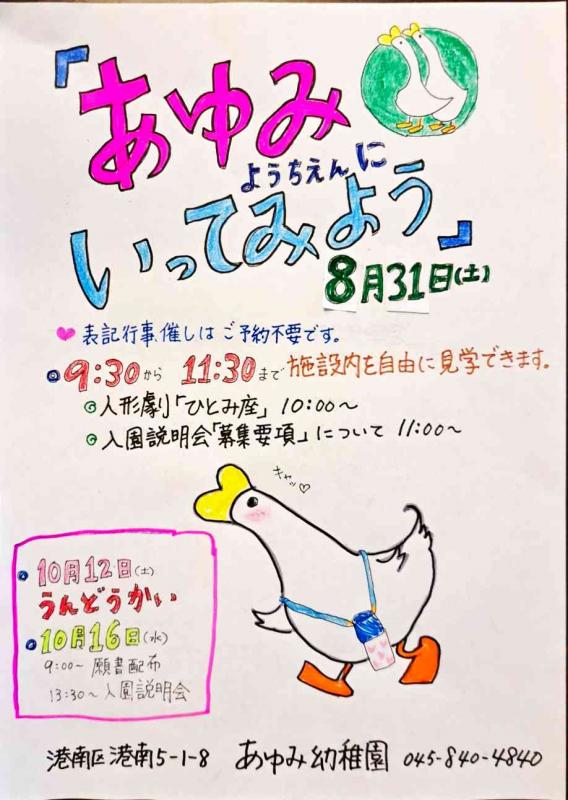 『あゆみ
ようちえんに
いってみよう』
8月31日(土)
表記行事、催しは ご予約不要です。
9:30から 11:30まで 施設内を自由に見学できます。
◎人形劇「ひとみ座」 10:00〜
◎入園説明会「募集要項」について 11:00〜
キャッ♡
10月12日(土)
うんどうかい
10月16日(水)
9:00〜 願書配布
13:30〜 入園説明会
港南区港南5-1-8 あゆみ幼稚園 045-840-4840